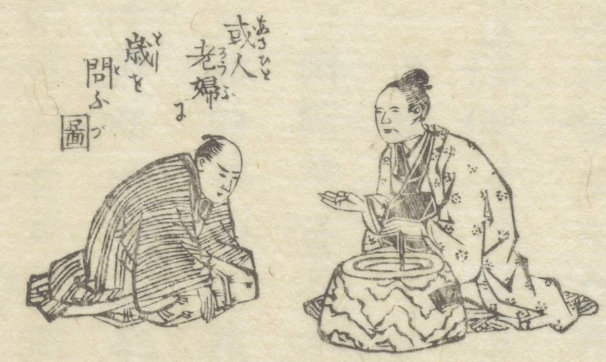 或人
老婦に
歳を
問ふ
圖